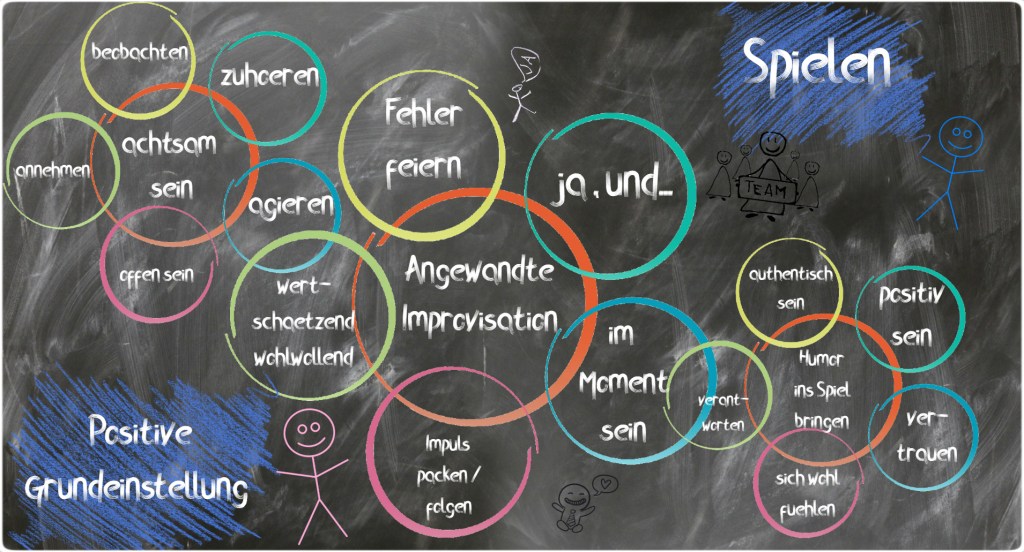 beobachten
zuhoeren
achtsam
sein
annehmen
agieren
offen sein
Fehler
feiern
JA
ja, und...
Spielen
TEAM
Angewandte
Improvisation
wert-
schaetzend
wohlwollend
im
Moment
sein
Impuls
packen /
folgen
authentisch
sein
positiv
sein
Humor
ins Spiel
bringen
verant-
worten
ver-
trauen
sich wohl
fuehlen
Positive
Grundeinstellung